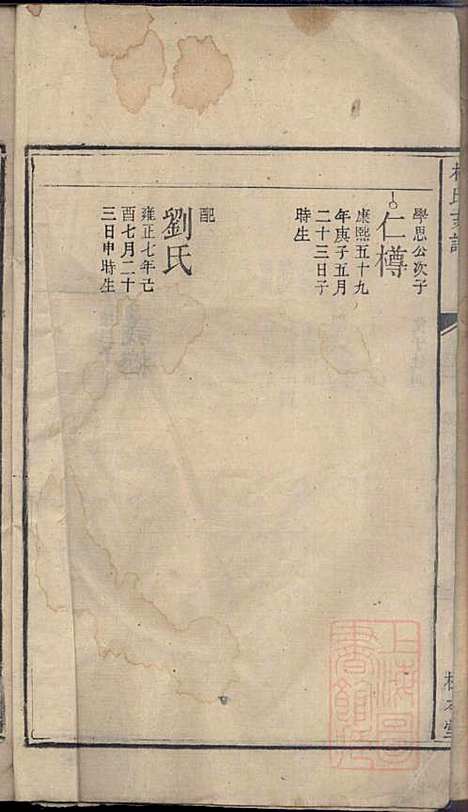 學思公次子
仁樽
康熙五十九
年庚子五月
二十三日子
時生
配
劉氏
雍正七年己
酉七月二十
三日申時生
上海圖書館藏